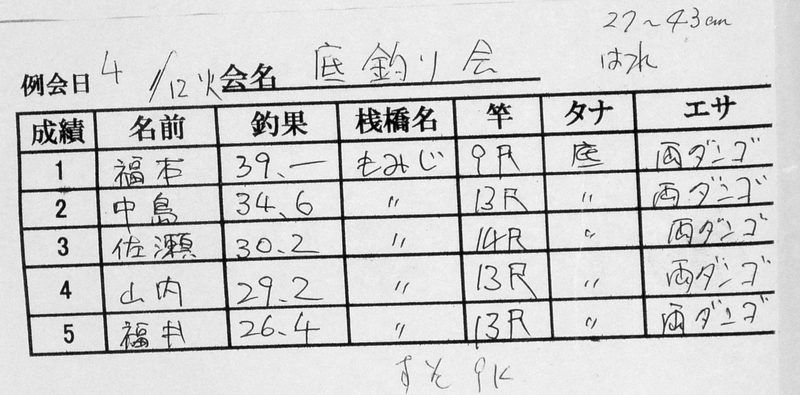 27～43cm
はれ
例会日 4/12火 会名 底釣り会
成績 名前 釣果 桟橋名 竿 タナ エサ
1 福本 39.一 もみじ 9尺 底 両ダンゴ
2 中島 34.6 〃 13尺 〃 両ダンゴ
3 佐瀬 30.2 〃 14尺 〃 両ダンゴ
4 山内 29.2 〃 13尺 〃 両ダンゴ
5 福井 26.4 〃 13尺 〃 両ダンゴ
すそ 9K